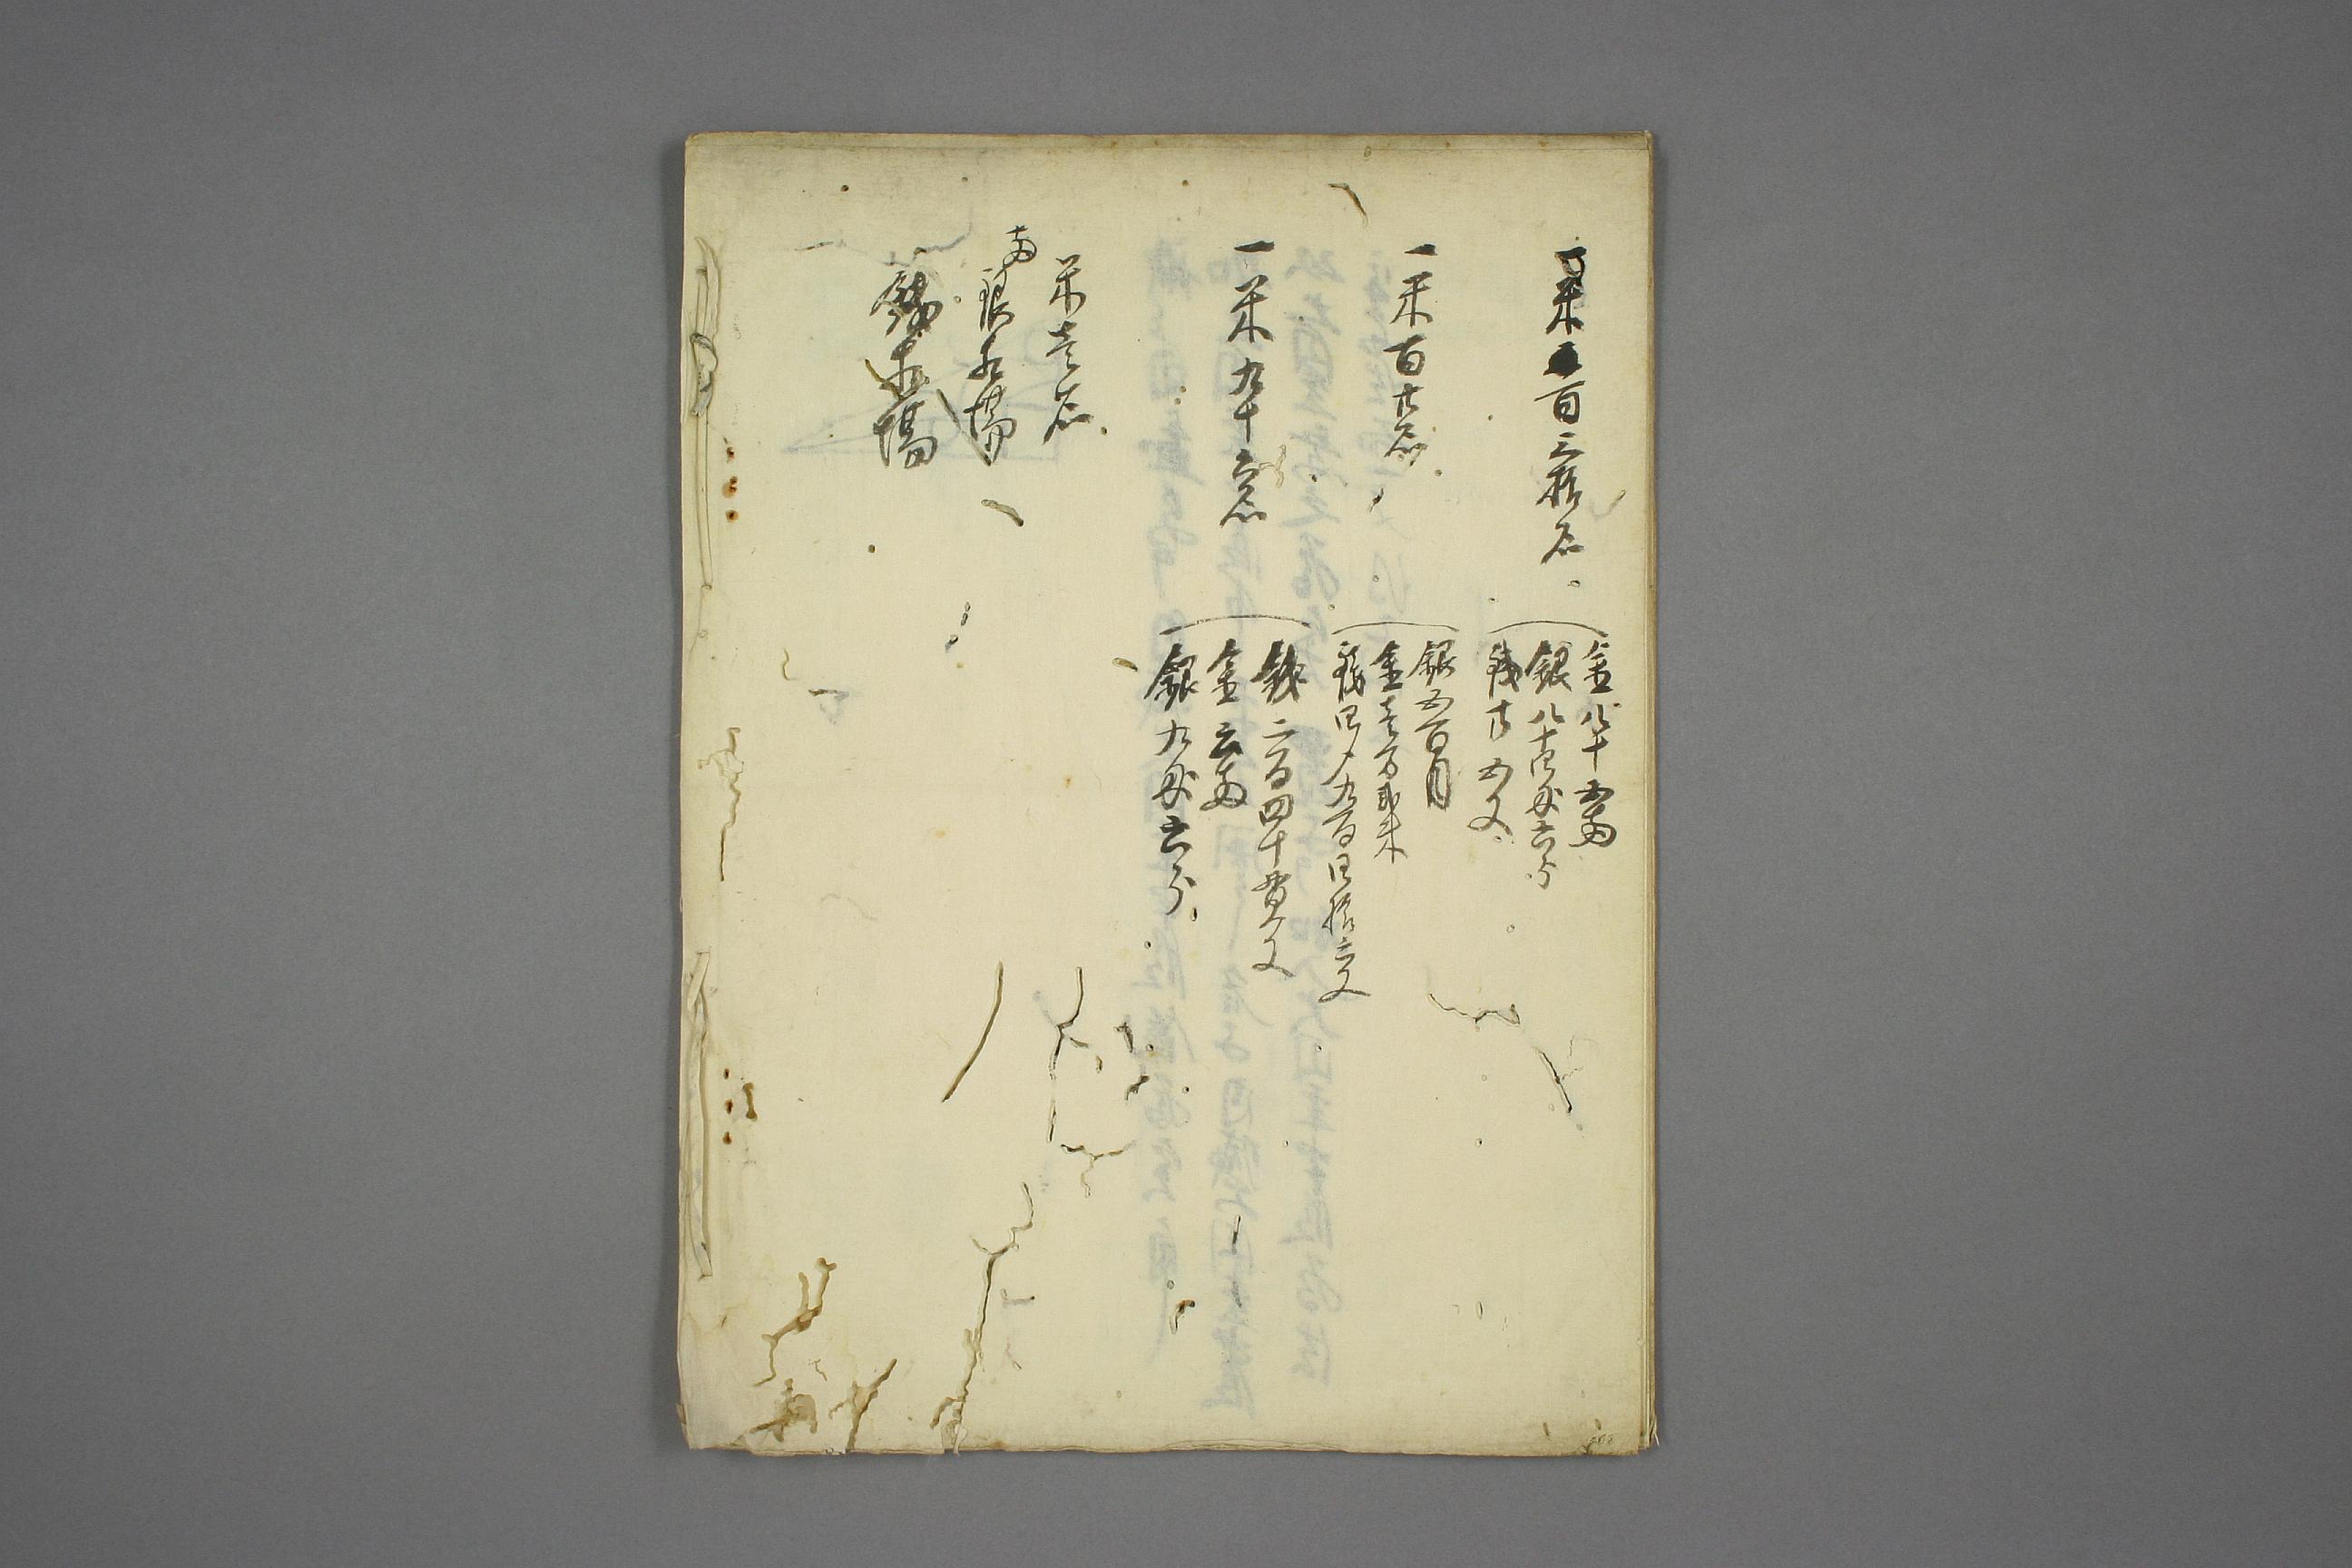 一米百三拾石
金八十五両
銀八十四匁六分
銭廿五文
一米百廿石
銀五百目
金壱分弐朱
銭四〆九百四拾六文
一米九十六石
銭二百四十貫文
金六両
銀九匁六分
米壱石
両
銀相場
銭相場